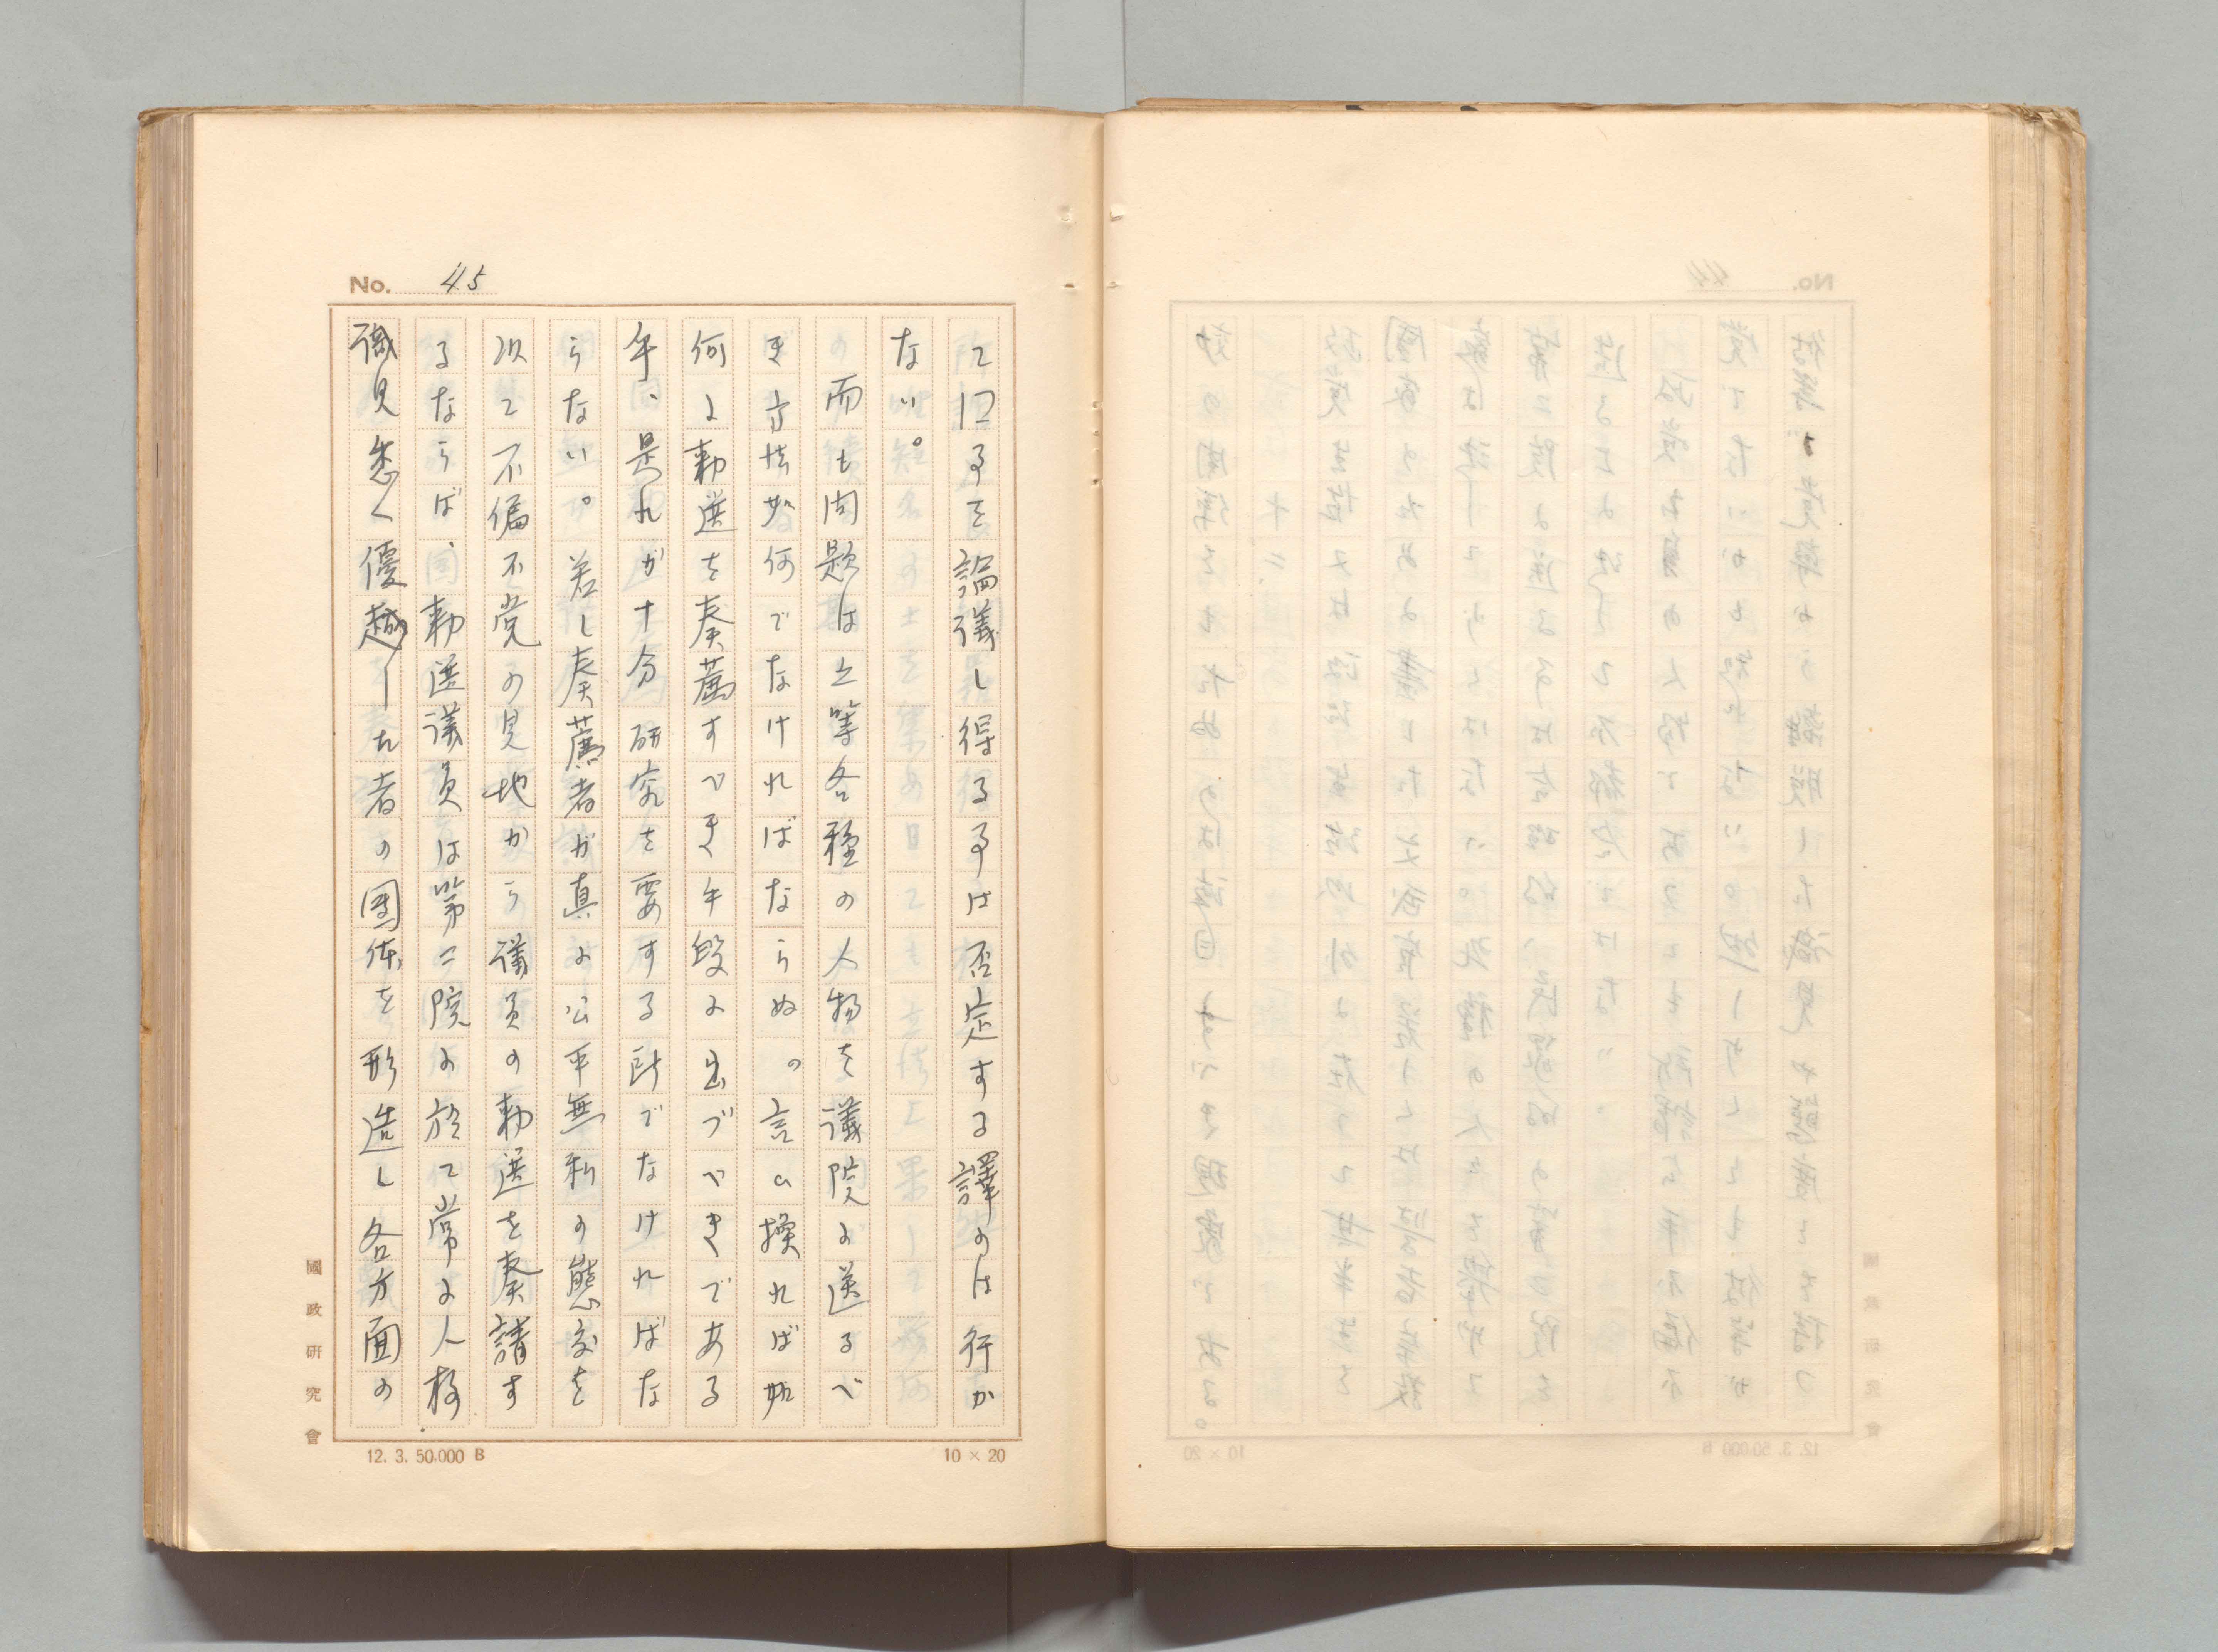 No. 45
て事を論議し得る事は否定する譯には行か
ない。
而も問題は之等各種の人物を議院に送るべ
き方法如何でなければならぬ。言ひ換れば如
何に勅選を奏薦すべき手段に出づべきである
乎、是れが十分研究を要する所でなければな
らない。若し奏薦者が真に公平無私の態度を
以て不偏不党の見地から議員の勅選を奏請す
るならば、勅選議員は第二院に於て常に人格
識見悉く優越した者の團体を形造し各方面の
國政研究會
12. 3. 50.000 B
10 × 20